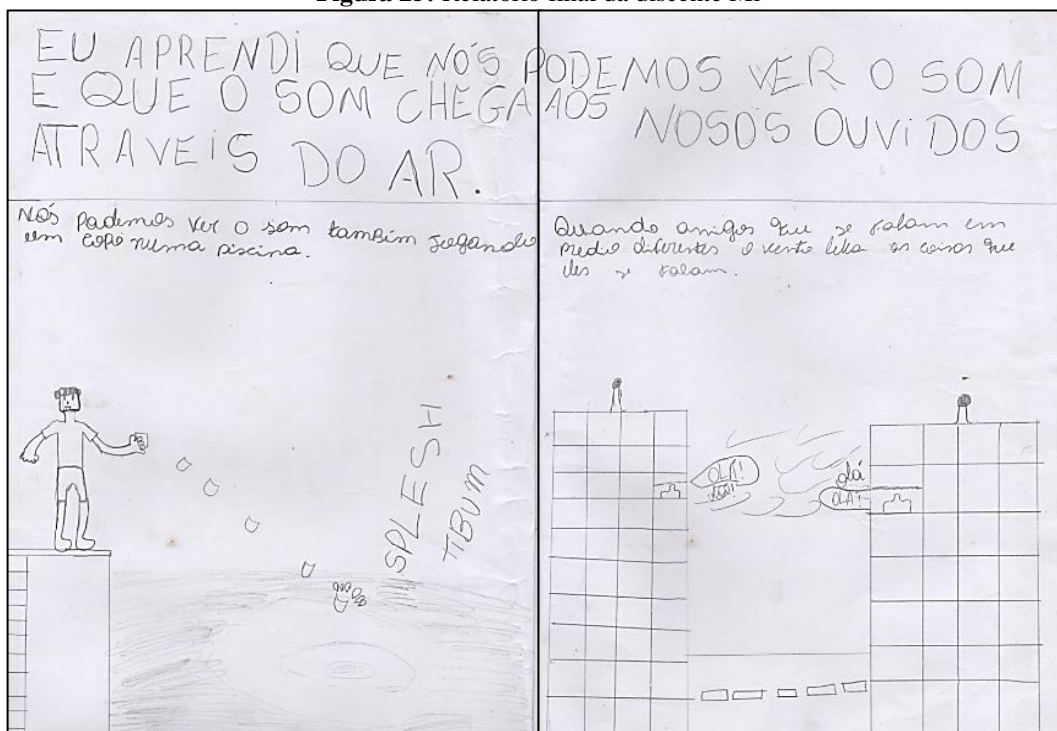 EU APRENDI QUE NÓS PODEMOS VER O SOM
E QUE O SOM CHEGA AOS NOSOS OUVIDOS
ATRAVEIS DO AR.
Nós pademos ver o som tambim jogando
um copo numa piscina.
SPLESH
TIBUM
Quando amigos que se falam em
predio diferentes o vento leka as coisas que
eles se falam.
OLÁ!
olá
OLÁ!